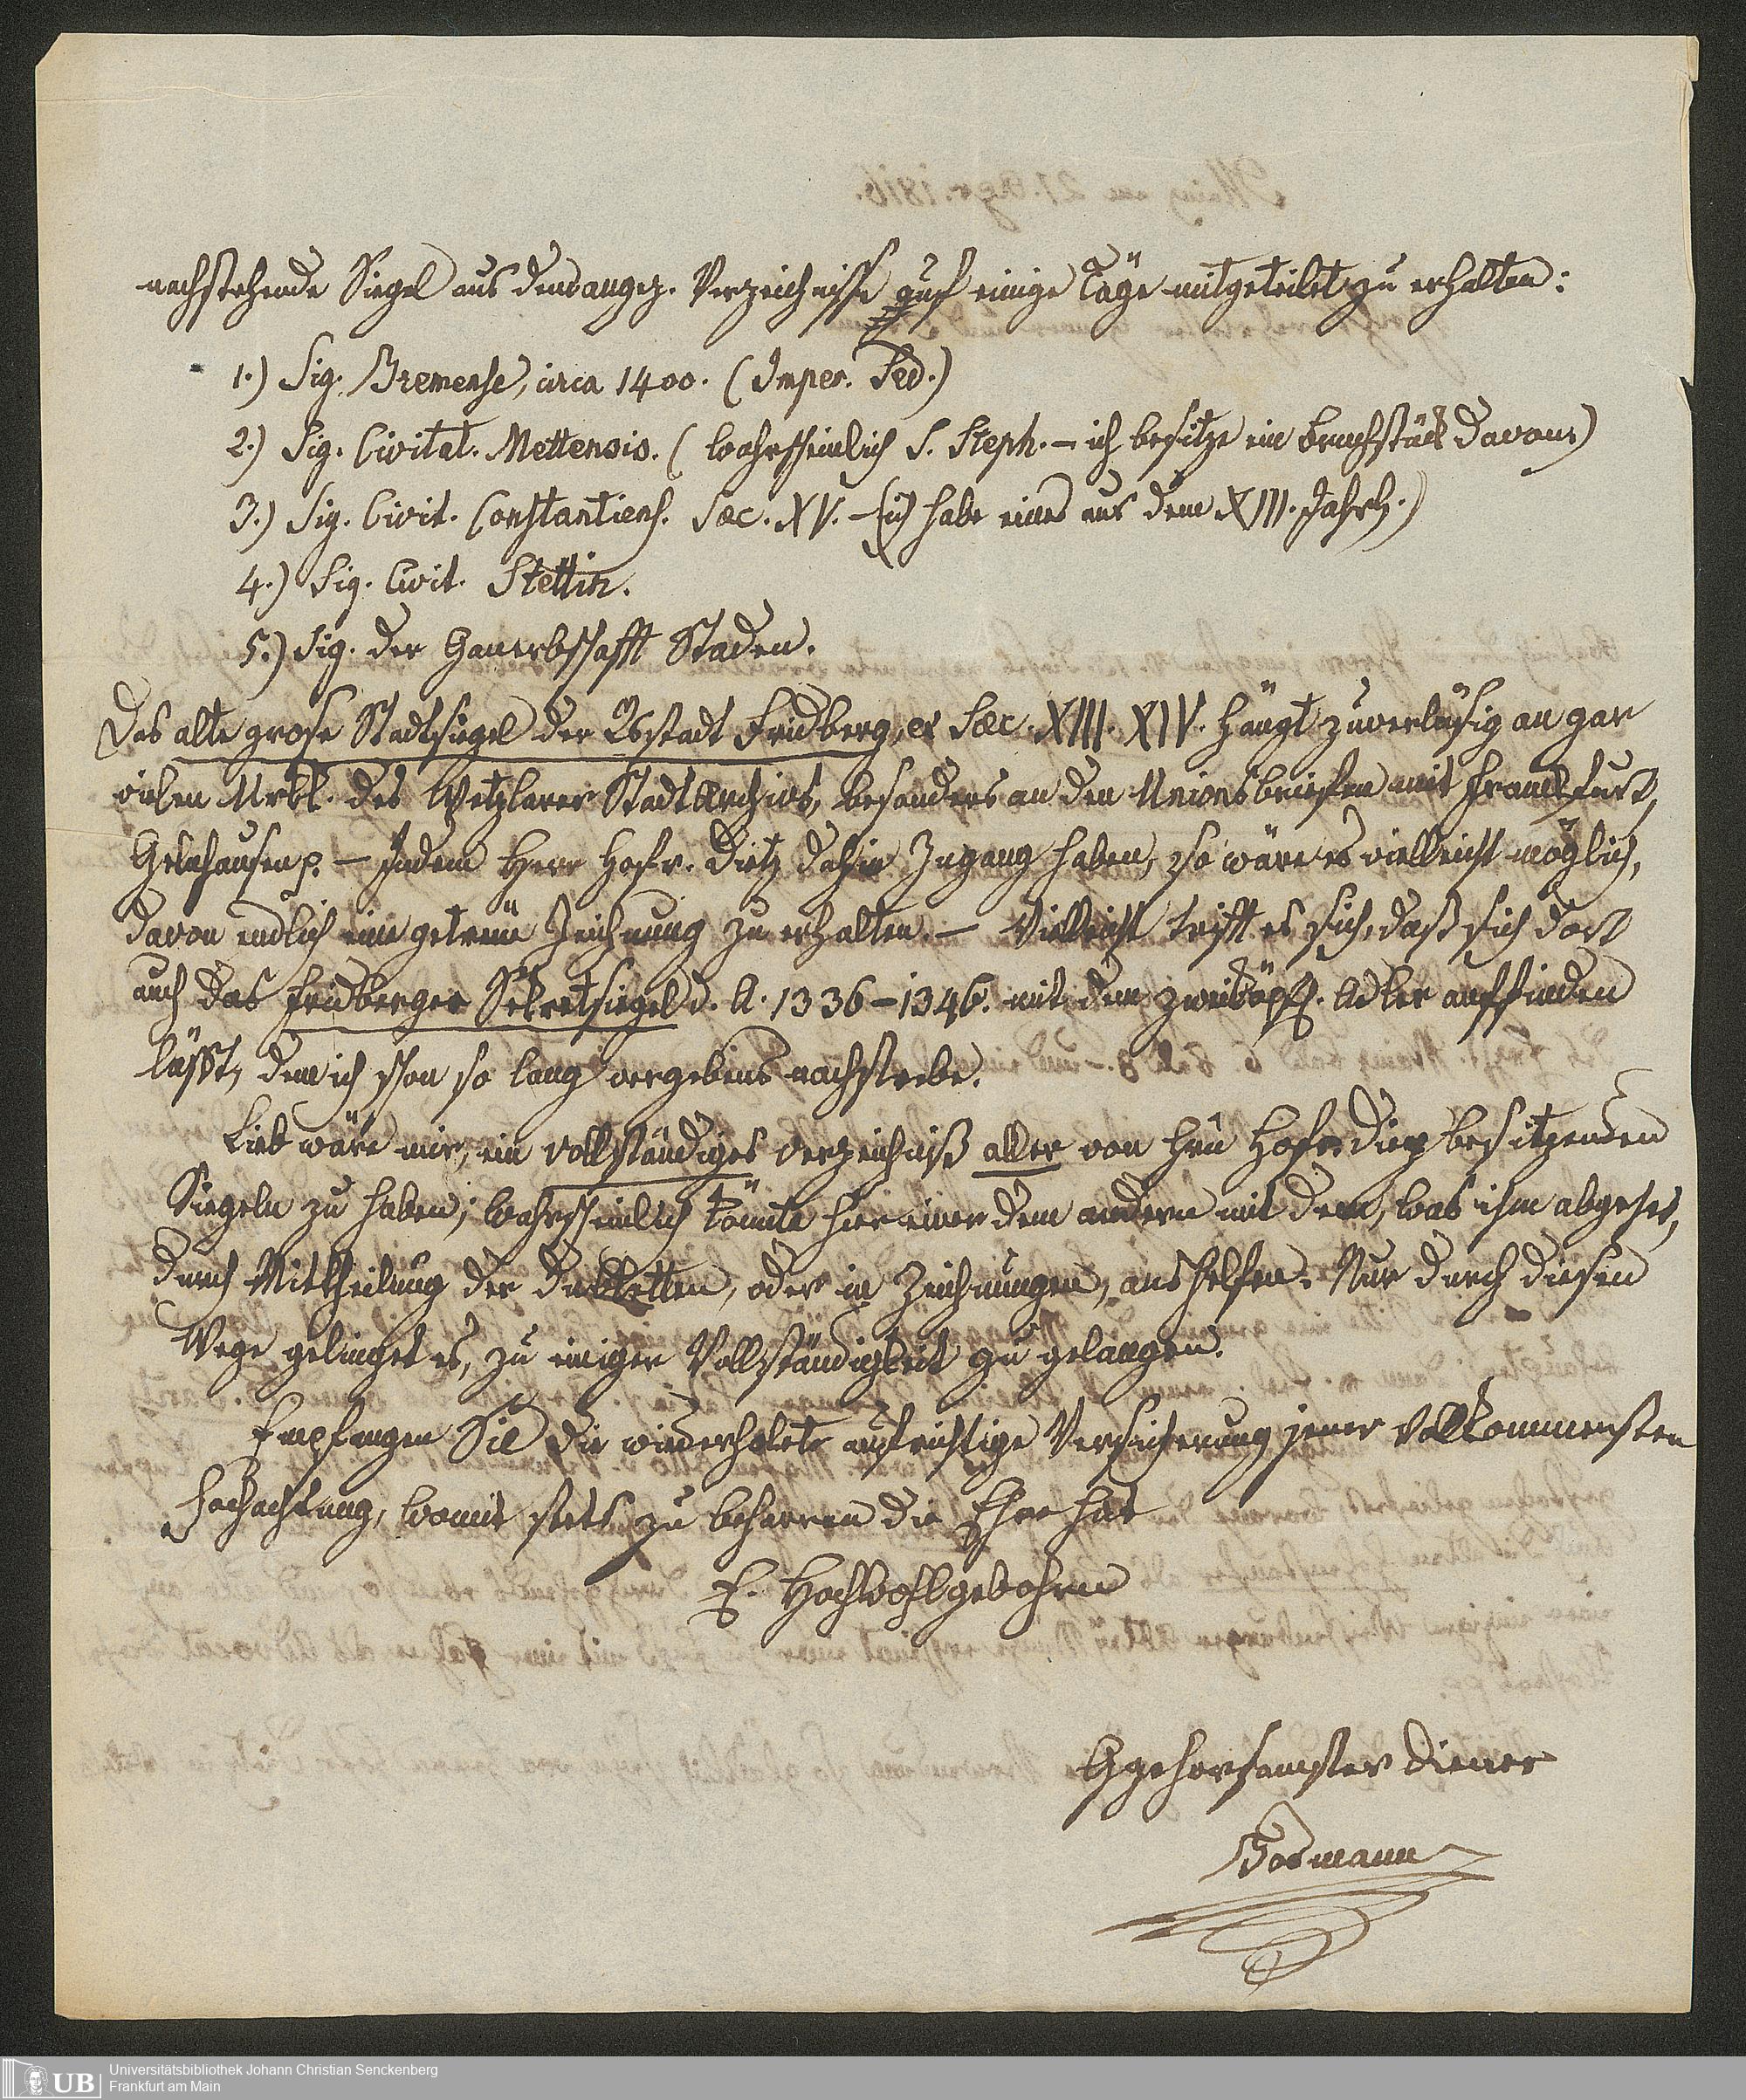 nachstehende Siegel aus dem angez. Verzeichnisse auf einige Täge mitgeteilet zu erhalten:
1.) Sig. Bremense, circa 1400. (Imper. Sed.)
2.) Sig. Civitat. Mettensis. (Wahrscheinlich S. Steph. – ich besitze ein Bruchstück davon.)
3.) Sig. Civit. Constantiens. Sæc. XV. – (ich habe eines aus dem XIII. Jahrh.)
4.) Sig. Civit. Stettin.
5.) Sig. der Ganerbschafft Staden.
Das alte grose Stadtsiegel der Rsstadt Fridberg, ex Sæc. XIII. XIV. hängt zuverläsig an gar
vielen Urkk. des Wetzlarer StadtArchivs, besonders an den Unionsbriefen mit Franckfurt,
Gelnhausen p. – Indem Herr Hofr. Dietz dahin Zugang haben, so wäre es vielleicht möglich,
davon endlich eine getreue Zeichnung zu erhalten. – Vielleicht trifft es sich, daß sich dort
auch das Fridberger Sekretsiegel d. A. 1336–1346. mit dem zweiköpf. Adler auffinden
läßt, dem ich schon so lang vergebens nachstrebe.
Lieb wäre mir, ein vollständiges Verzeichniß aller von Hrn Hofr. Diez besitzenden
Siegeln zu haben; wahrscheinlich könnte hier einer dem andern mit dem, was ihm abgehet,
durch Mittheilung der Dubletten, oder in Zeichnungen, aushelfen. Nur durch diesen
Wege gelinget es, zu einiger Vollständigkeit zu gelangen.
Empfangen Sie die wiederholete aufrichtige Versicherung jener Vollkommensten
Hochachtung, womit stets zu beharren die Ehre hat
E. Hochwohlgebohren
Ggehorsamster Diener
Bodmann
UB Universitätsbibliothek Johann Christian Senckenberg
Frankfurt am Main